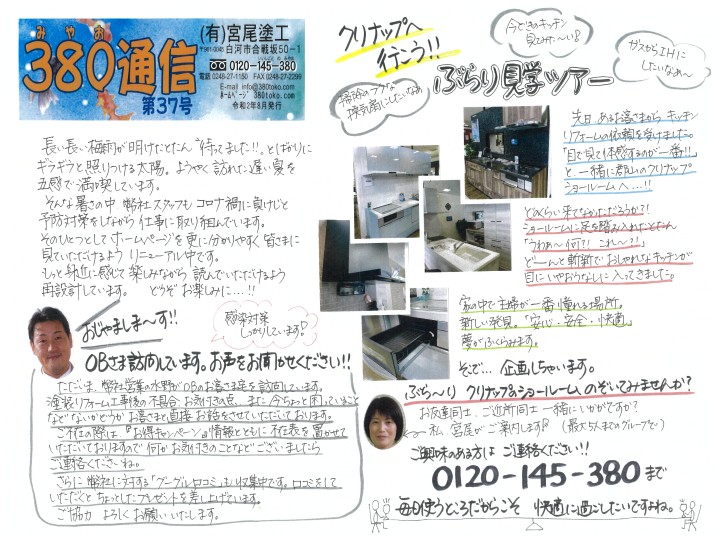 みやお
380通信
第37号
(有)宮尾塗工
〒961-0045
白河市合戦坂50-1
0120-145-380
電話 0248-27-1150 FAX 0248-27-2299
E-mail info@380toko.com
ホームページ 380toko.com
令和2年8月発行
長い長い梅雨が明けたとたん"待ってました!!"とばかりに
ギラギラと照りつける太陽。ようやく訪れた遅い夏を
五感で満喫しています。
そんな暑さの中 弊社スタッフも コロナ禍に負けじと
予防対策をしながら 仕事に取り組んでいます。
そのひとつとして ホームページを 更に分かりやすく 皆さまに
見ていただけるよう リニューアル中です。
もっと身近に感じて 楽しみながら 読んでいただけるよう
再設計しています。 どうぞ お楽しみに…!!
おじゃましま~す!!
感染対策
しっかりしています!
OBさま訪問しています。お声をお聞かせください!!
ただいま、弊社営業の水野が OBのお客さま宅を訪問しています。
塗装リフォーム工事後の不具合、お気付きの点、また 今ちょっと困っていること
などないかとうかお客さまと直接 お話をさせていただいております。
ご不在の際は、『お得キャンペーン』情報とともに 不在表を置かせて
いただいておりますので 何か お気付きのことなどございましたら
ご連絡くださいね。
さらに 弊社に対する「グーグル口コミ」も 収集中です。口コミをして
いただくと ちょっとしたプレゼントを差し上げています。
ご協力 よろしくお願いいたします。
クリナップへ
行こう!!
今どきのキッチン
見てみた~い♪
ガスからIHに
したいなぁ~
掃除のラクな
換気扇にしたいなぁ
ぶらり見学ツアー
先日、あるお客さまから キッチン
リフォームの依頼を受けました。
「目で見て体感するのが一番!!」
と、一緒に郡山のクリナップ
ショールームへ…!!
どのくらい来てなかっただろうか?!
ショールームに足を踏み入れたとたん
「うわぁ~何?! これ~?!」
ど~んと斬新で おしゃれなキッチンが
目にいやおうなしに入ってきました。
家の中で 主婦が一番 憧れる場所。
新しい発見。「安心・安全・快適」
夢がふくらみます。
そこで… 企画しちゃいます。
ぶら~り クリナップのショールーム のぞいてみませんか?
お友達同士、ご近所同士 一緒にいかがですか?
私、宮尾がご案内します! (最大5人までのグループで)
ご興味のある方は ご連絡ください!!
0120-145-380まで
毎日使うところだからこそ 快適に過ごしたいですよね。